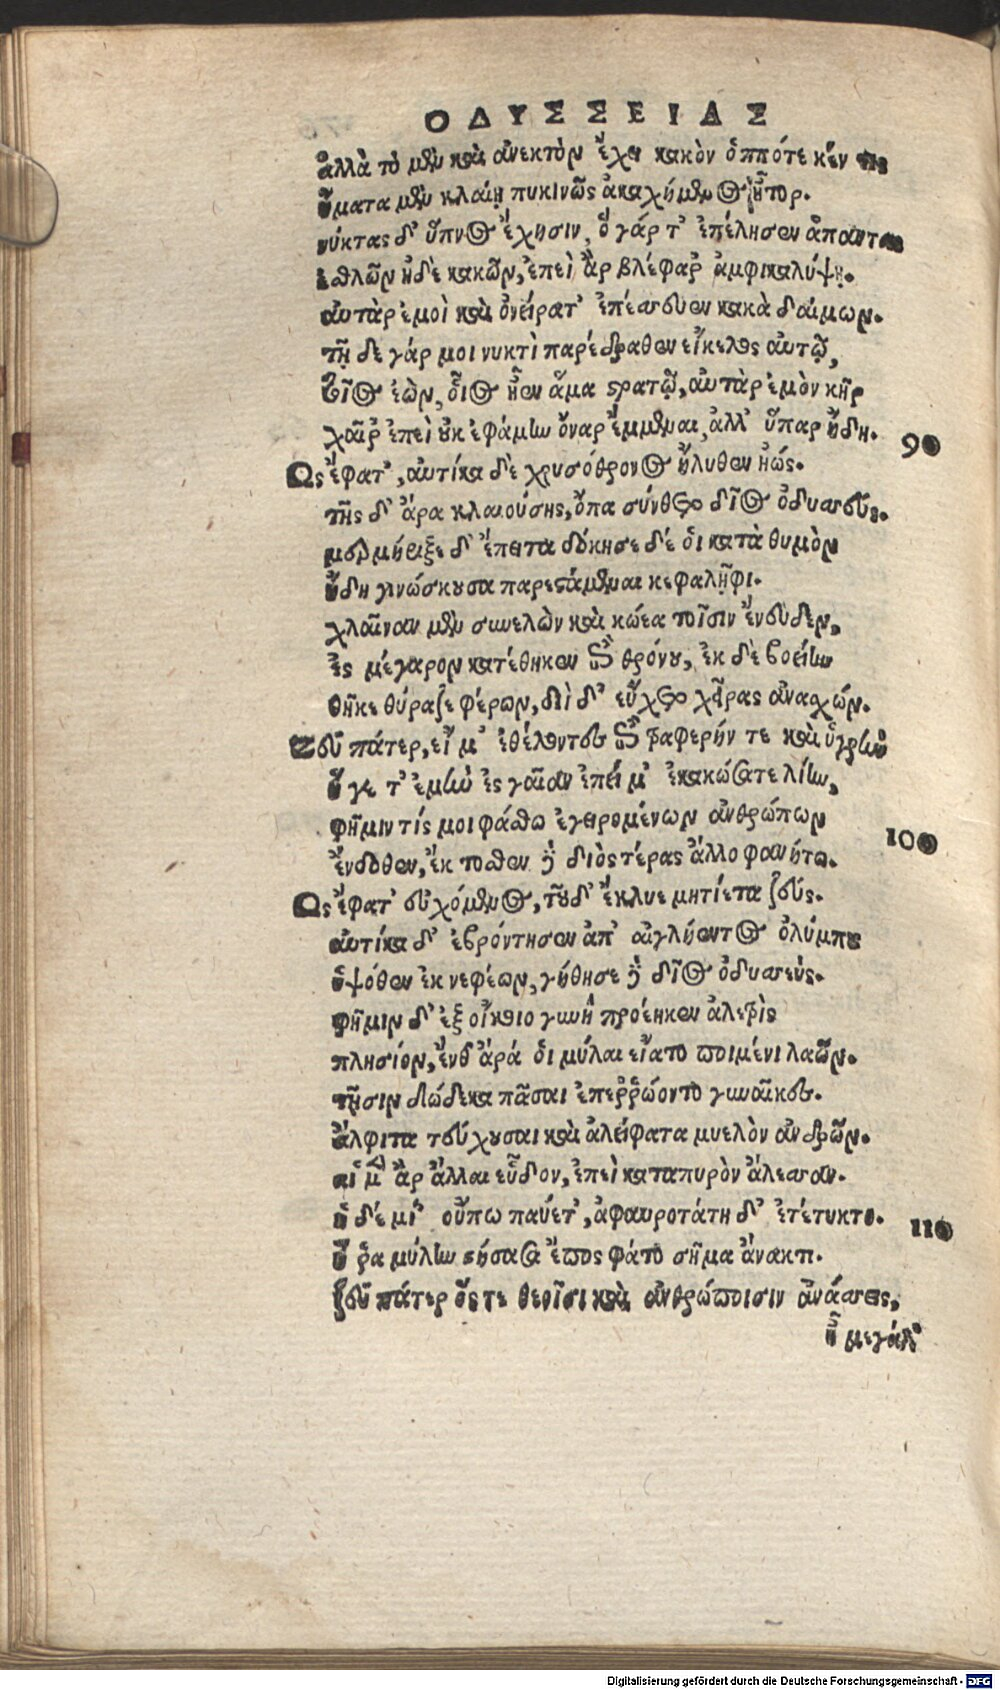 ΟΔΥΣΣΕΙΑΣ
ἀλλὰ τὸ μὲν καὶ ἀνεκτὸν ἔχει κακὸν ὁππότε κέν τις
ἤματα μὲν κλαίῃ πυκινῶς ἀκαχήμενος ἦτορ.
νύκτας δ' ὕπνος ἔχησιν, ὁ γάρ τ' ἐπέλησεν ἁπάντων
ἐσθλῶν ἠδὲ κακῶν, ἐπεὶ ἂρ βλέφαρ ἀμφικαλύψῃ.
αὐτὰρ ἐμοὶ καὶ ὀνείρατ' ἐπέσσευεν κακὰ δαίμων.
τῇ δε γάρ μοι νυκτὶ παρέδραθεν εἴκελος αὐτῷ,
τοῖος ἐὼν, οἷος ᾖεν ἅμα στρατῷ, αὐτὰρ ἐμὸν κῆρ
χαῖρ ἐπεὶ οὐκ ἐφάμην ὄναρ ἔμμεναι, ἀλλ' ὕπαρ ἤδη.
90
Ως ἔφατ', αὐτίκα δὲ χρυσόθρονος ἤλυθεν ἠώς.
τῆς δ' ἄρα κλαιούσης, ὄπα σύνθετο δῖος ὀδυσσεύς.
μερμήριξε δ' ἔπειτα δόκησε δέ ὁι κατὰ θυμὸν
ἤδη γινώσκουσα παρεστάμεναι κεφαλῆφι.
χλαῖναν μὲν συνελὼν καὶ κώεα τοῖσιν ἔνευδεν,
ἐς μέγαρον κατέθηκεν ἐπὶ θρόνου, ἐκ δὲ βοείην
θῆκε θύραζε φέρων, διὶ δ' εὔχετο χεῖρας ἀνασχών.
Ζεῦ πάτερ, εἴ μ' ἐθέλοντες ἐπὶ τραφερήν τε καὶ ὑγρὴν
ἤγετ' ἐμὴν ἐς γαῖαν ἐπεί μ' ἐκακώσατε λίην,
φῆμιν τίς μοι φάσθω ἐγειρομένων ἀνθρώπων
100
ἔνδοθεν, ἔκτοσθεν δὲ διὸς τέρας ἄλλο φανήτω.
Ως ἔφατ' εὐχόμενος, τοῦ δ' ἔκλυε μητίετα ζεύς.
αὐτίκα δ' ἐβρόντησεν ἀπ' αἰγλήεντος ὀλύμπου
ὑψόθεν ἐκ νεφέων, γήθησε δὲ δῖος ὀδυσσεύς.
φῆμιν δ' ἐξ οἴκοιο γυνὴ προέηκεν ἀλετρὶς
πλησίον, ἔνθ' ἄρά ὁι μύλαι εἵατο ποιμένι λαῶν.
τῇσιν δώδεκα πᾶσαι ἐπεῤῥώοντο γυναῖκες.
ἄλφιτα τεύχουσαι καὶ ἀλείφατα μυελὸν ἀνδρῶν.
αἱ μὲν ἂρ ἄλλαι εὗδον, ἐπεὶ κατα πυρὸν ἄλεσσαν.
ἡ δὲ μί' οὔπω παύετ', ἀφαυροτάτη δ' ἐτέτυκτο.
110
ἥ ῥα μύλην στήσασα ἔπος φάτο σῆμα ἄνακτι.
ζεῦ πάτερ ὅς τε θεοῖσι καὶ ἀνθρώποισιν ἀνάσσεις,
ἦ μεγάλ'
Digitalisierung gefördert durch die Deutsche Forschungsgemeinschaft · DFG